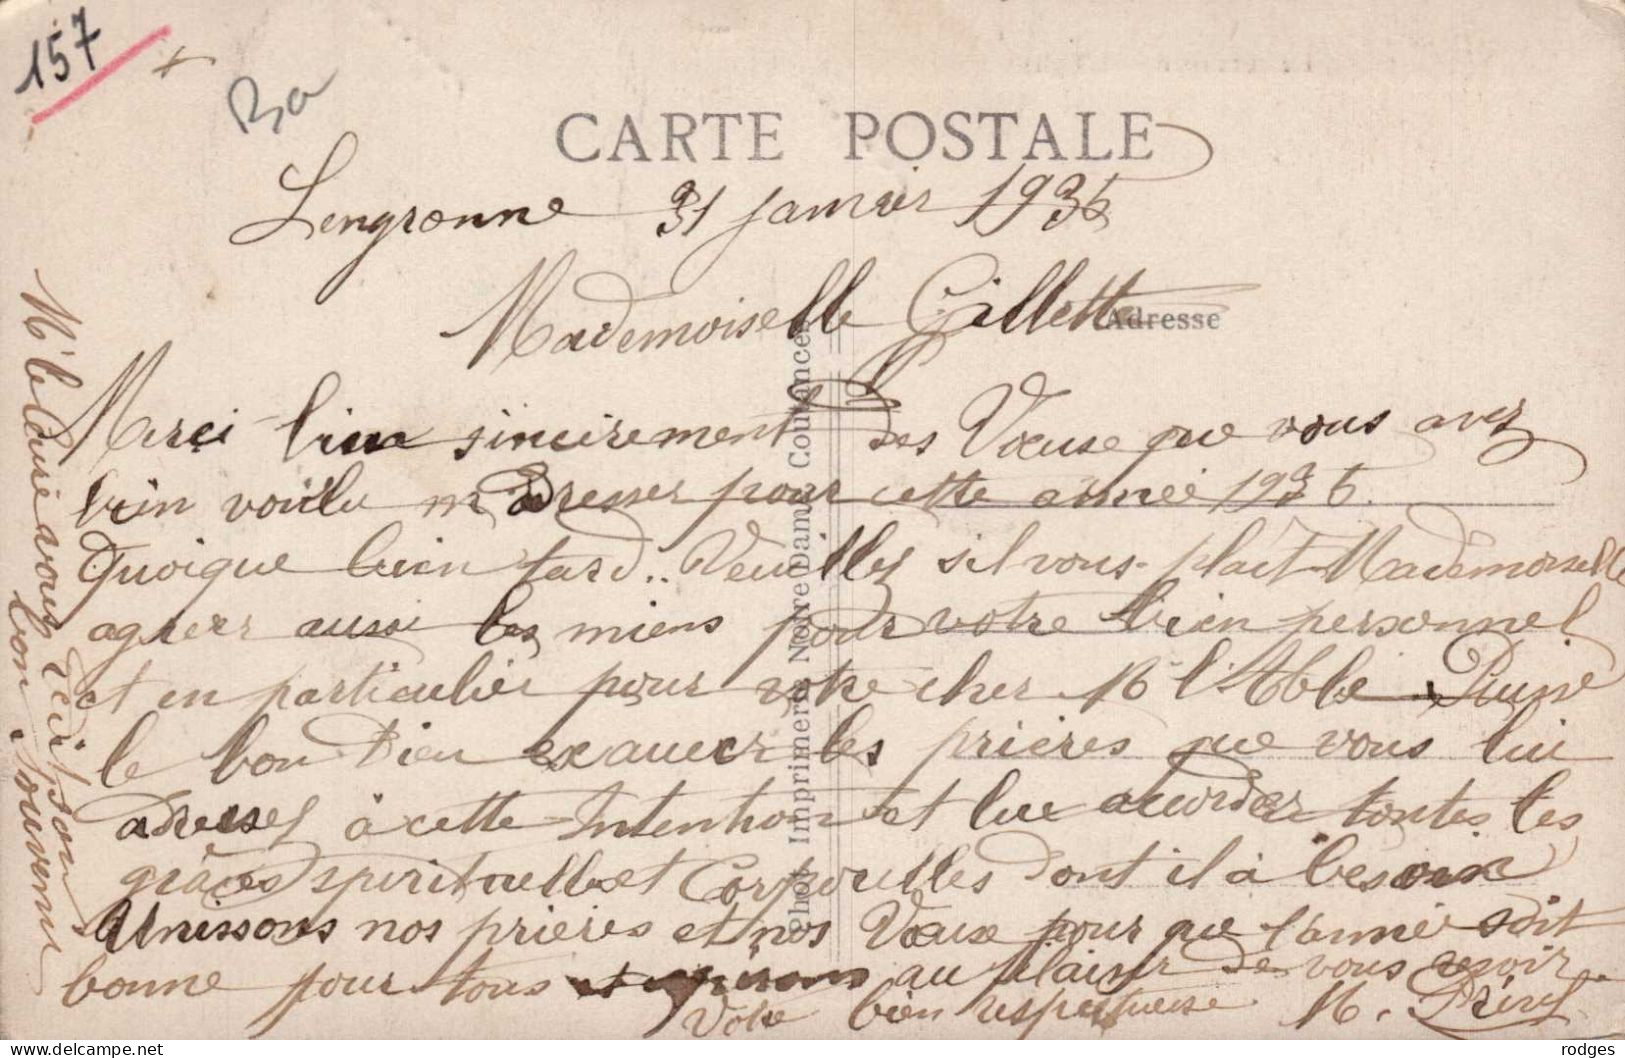 157
CARTE POSTALE
Lengronne 31 janvier 1936
Mademoiselle Gillette
Adresse
Merci bien sincirement des Vœuse que vous avez
bien voulu m adresser pour cette année 1936.
Quoique bien tard.. Veuillez s'il vous-plait Mademoiselle
agreer aussi les miens pour votre bien personnel
et en particulier pour votre cher M l'Abbé
le bon Dieu exaucer les prières que vous lui
adressez à cette Intention et lui accorder toutes les
grâces spirituelles et Corporelles dont il à besoin
Unissons nos prieres et nos Vœux pour que l'année soit
bonne pour tous au plaisir de vous revoir
Votre bien respectueuse M.
vous
bon Souvenir
Phot. Imprimerie Notre Dame Coutances
rodges
delcampe.net